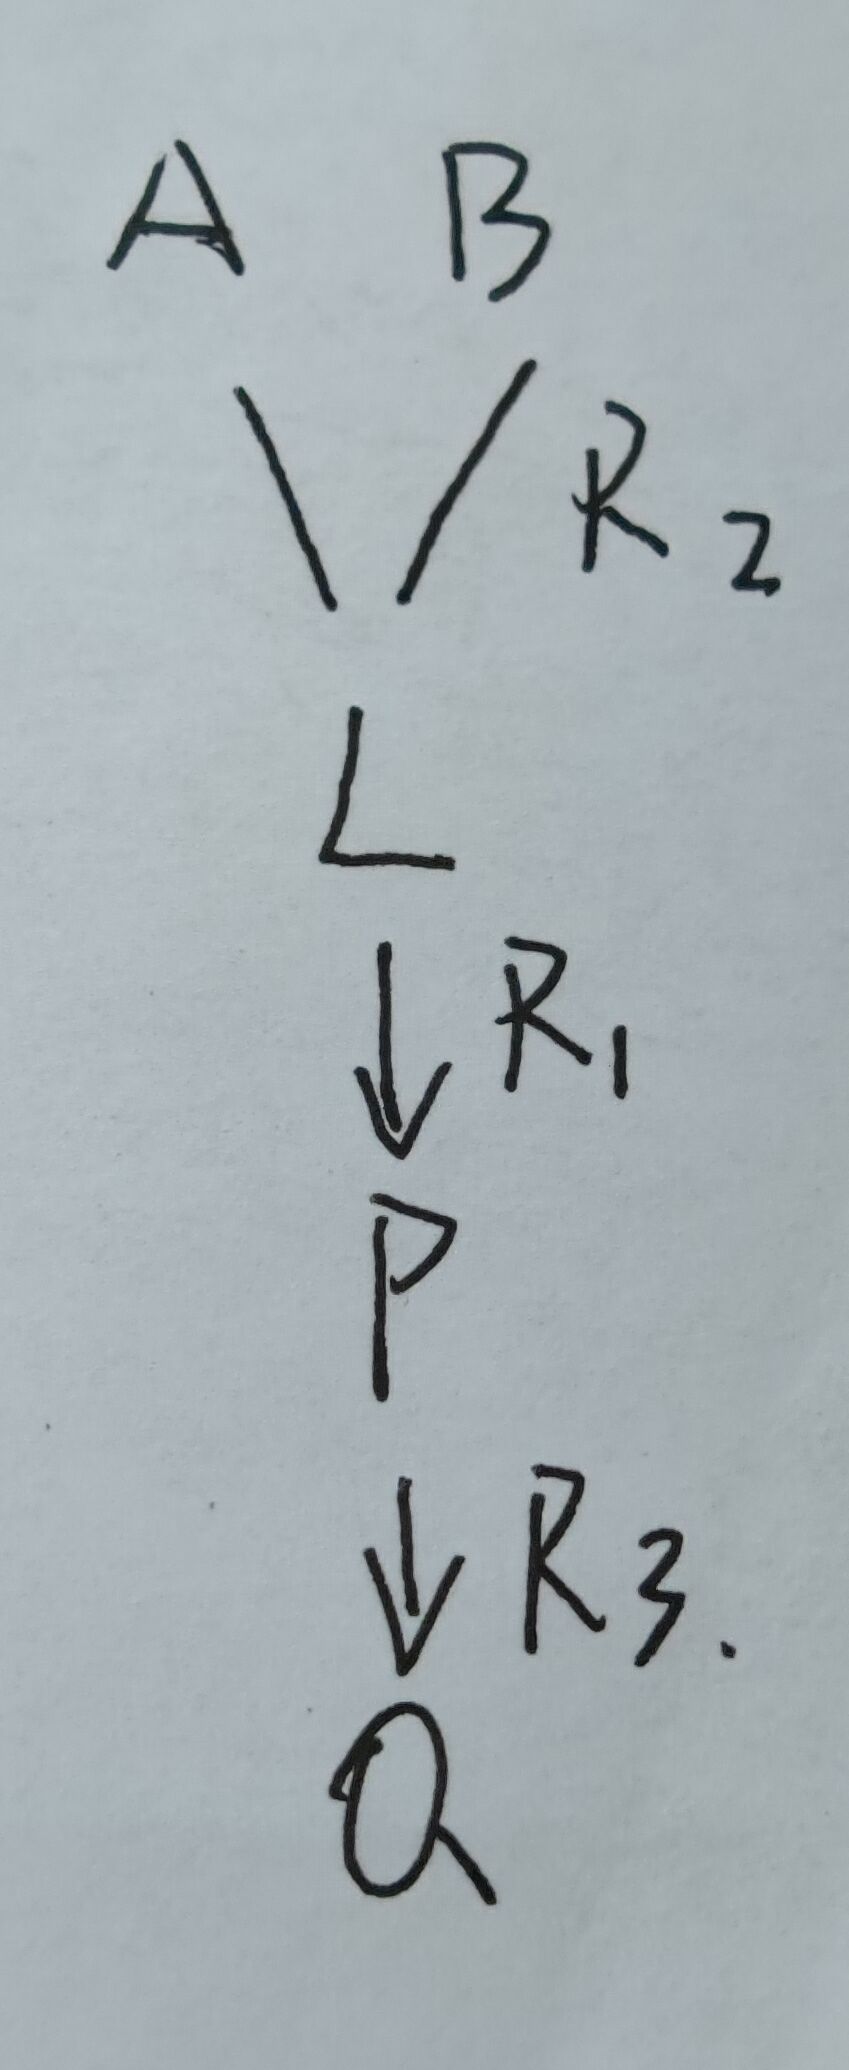 A B
R2
L
R1
P
R3.
Q